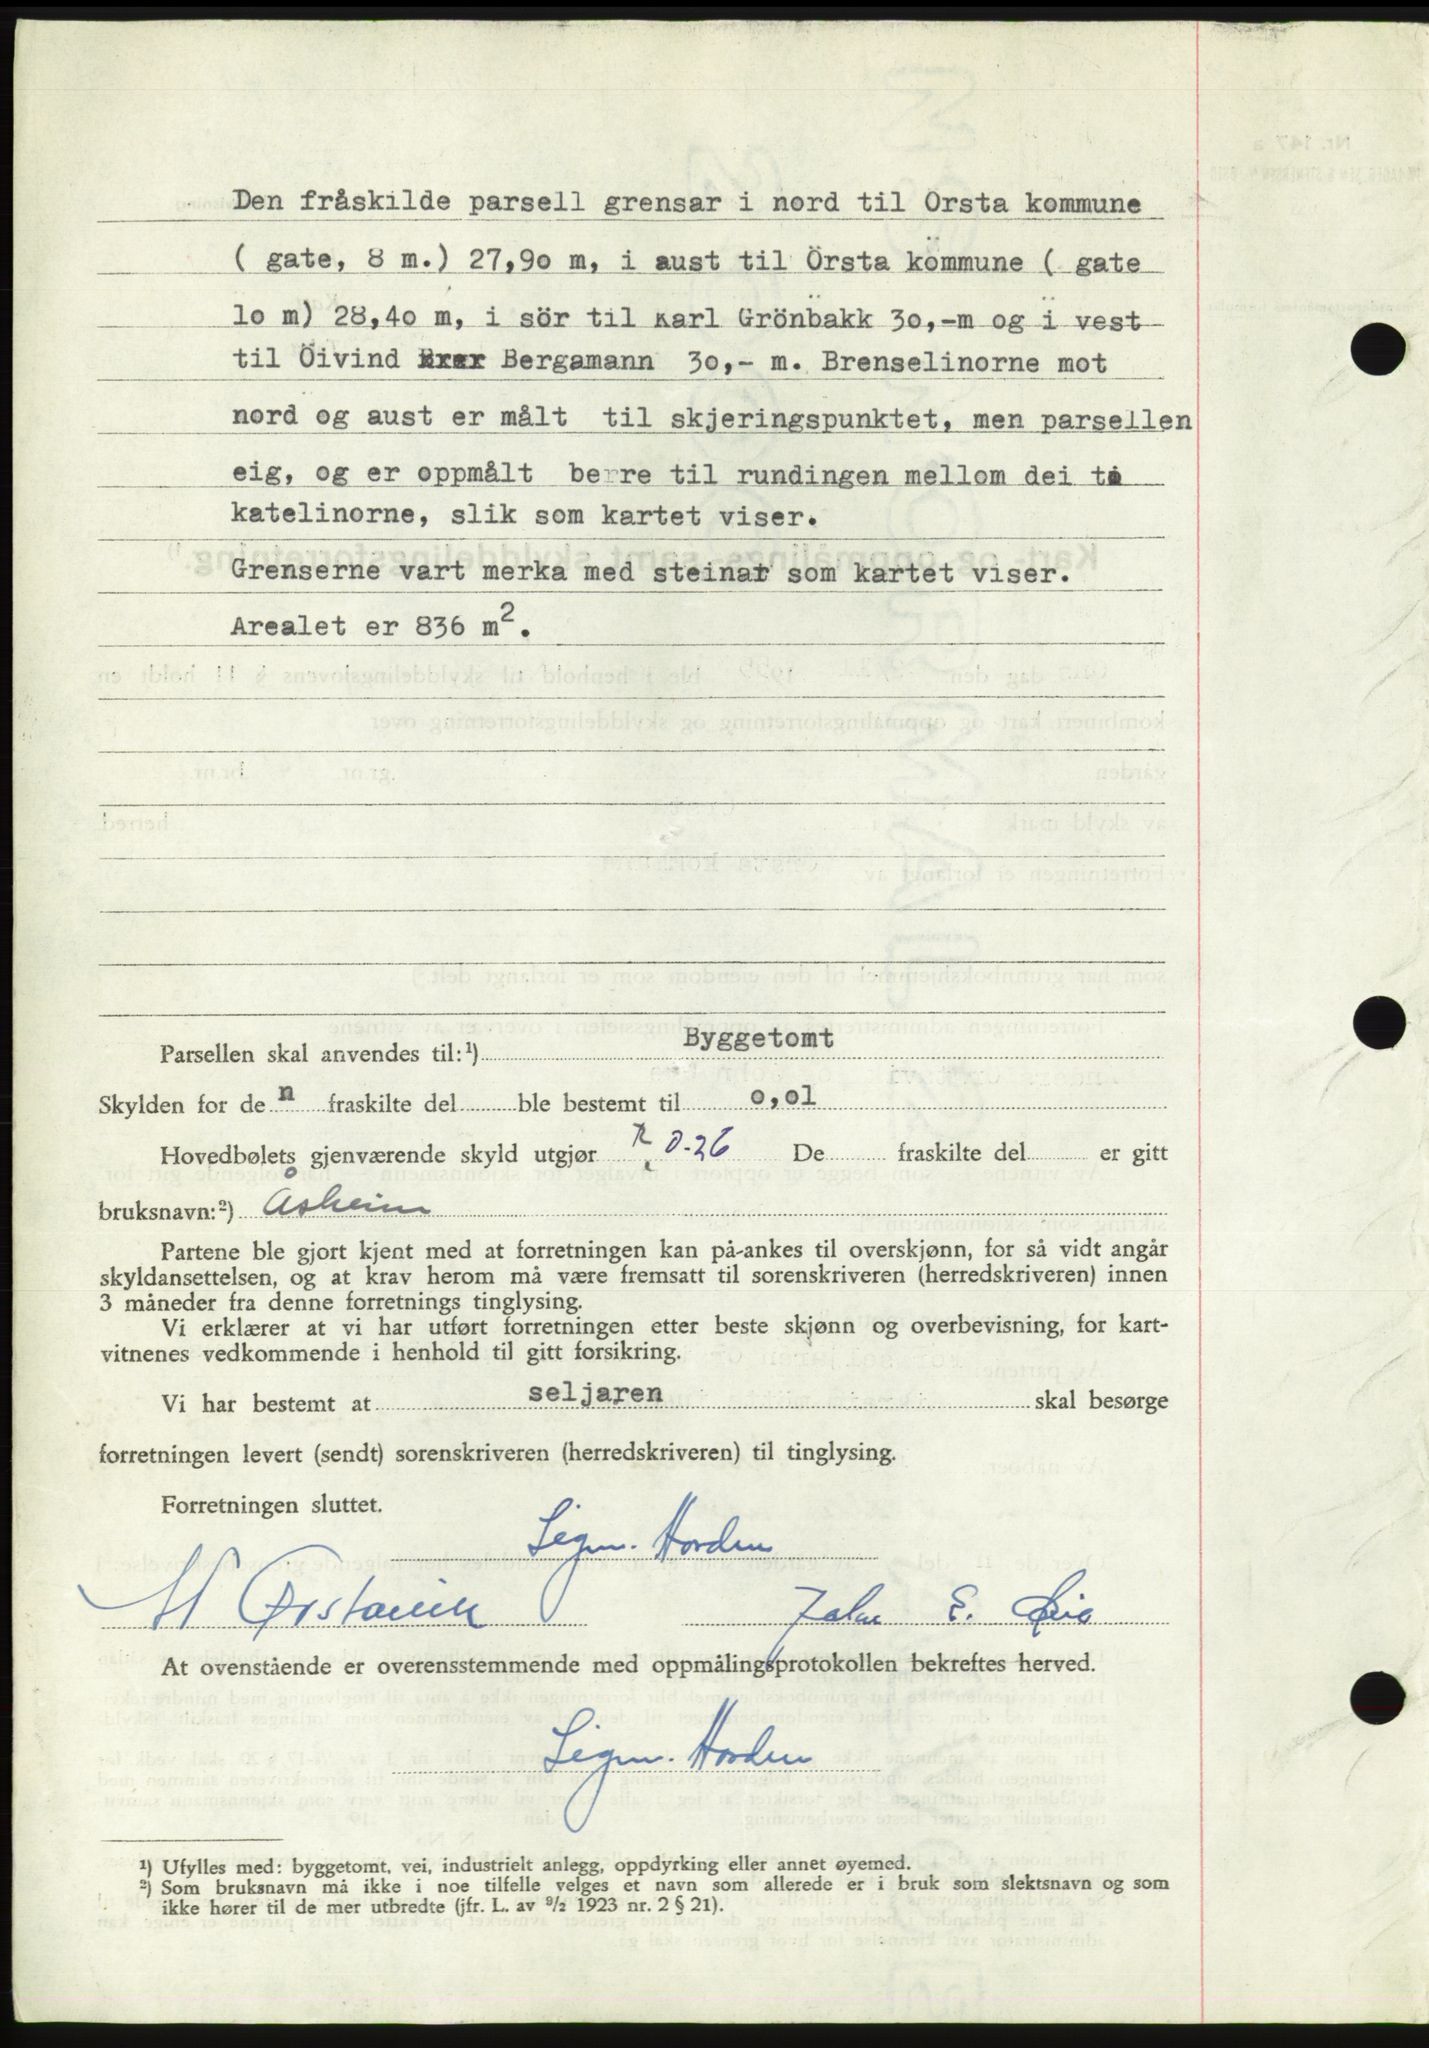 Den fråskilde parsell grensar i nord til Orsta kommune
( gate, 8 m.) 27,90 m, i aust til Örsta kömmune ( gate
lo m) 28,40 m, i sör til Karl Grönbakk 30,-m og i vest
til Öivind Bergamann 30,- m. Brenselinorne mot
nord og aust er målt til skjeringspunktet, men parsellen
eig, og er oppmålt berre til rundingen mellom dei to
katelinorne, slik som kartet viser.
Grenserne vart merka med steinar som kartet viser.
Arealet er 836 m².
Parsellen skal anvendes til:¹) Byggetomt
Skylden for de n fraskilte del ble bestemt til o,ol
Hovedbølets gjenværende skyld utgjør 0-26 De fraskilte del er gitt
bruksnavn:²) Åsheim
Partene ble gjort kjent med at forretningen kan på-ankes til overskjønn, for så vidt angår
skyldansettelsen, og at krav herom må være fremsatt til sorenskriveren (herredskriveren) innen
3 måneder fra denne forretnings tinglysing.
Vi erklærer at vi har utført forretningen etter beste skjønn og overbevisning, for kart-
vitnenes vedkommende i henhold til gitt forsikring.
Vi har bestemt at seljaren skal besørge
forretningen levert (sendt) sorenskriveren (herredskriveren) til tinglysing.
Forretningen sluttet.
Sigm. Horden
Ørstavik E.
At ovenstående er overensstemmende med oppmålingsprotokollen bekreftes herved.
Sigm. Horden
¹) Ufylles med: byggetomt, vei, industrielt anlegg, oppdyrking eller annet øyemed.
²) Som bruksnavn må ikke i noe tilfelle velges et navn som allerede er i bruk som slektsnavn og som
ikke hører til de mer utbredte (jfr. L. av ⁹/₂ 1923 nr. 2 § 21).